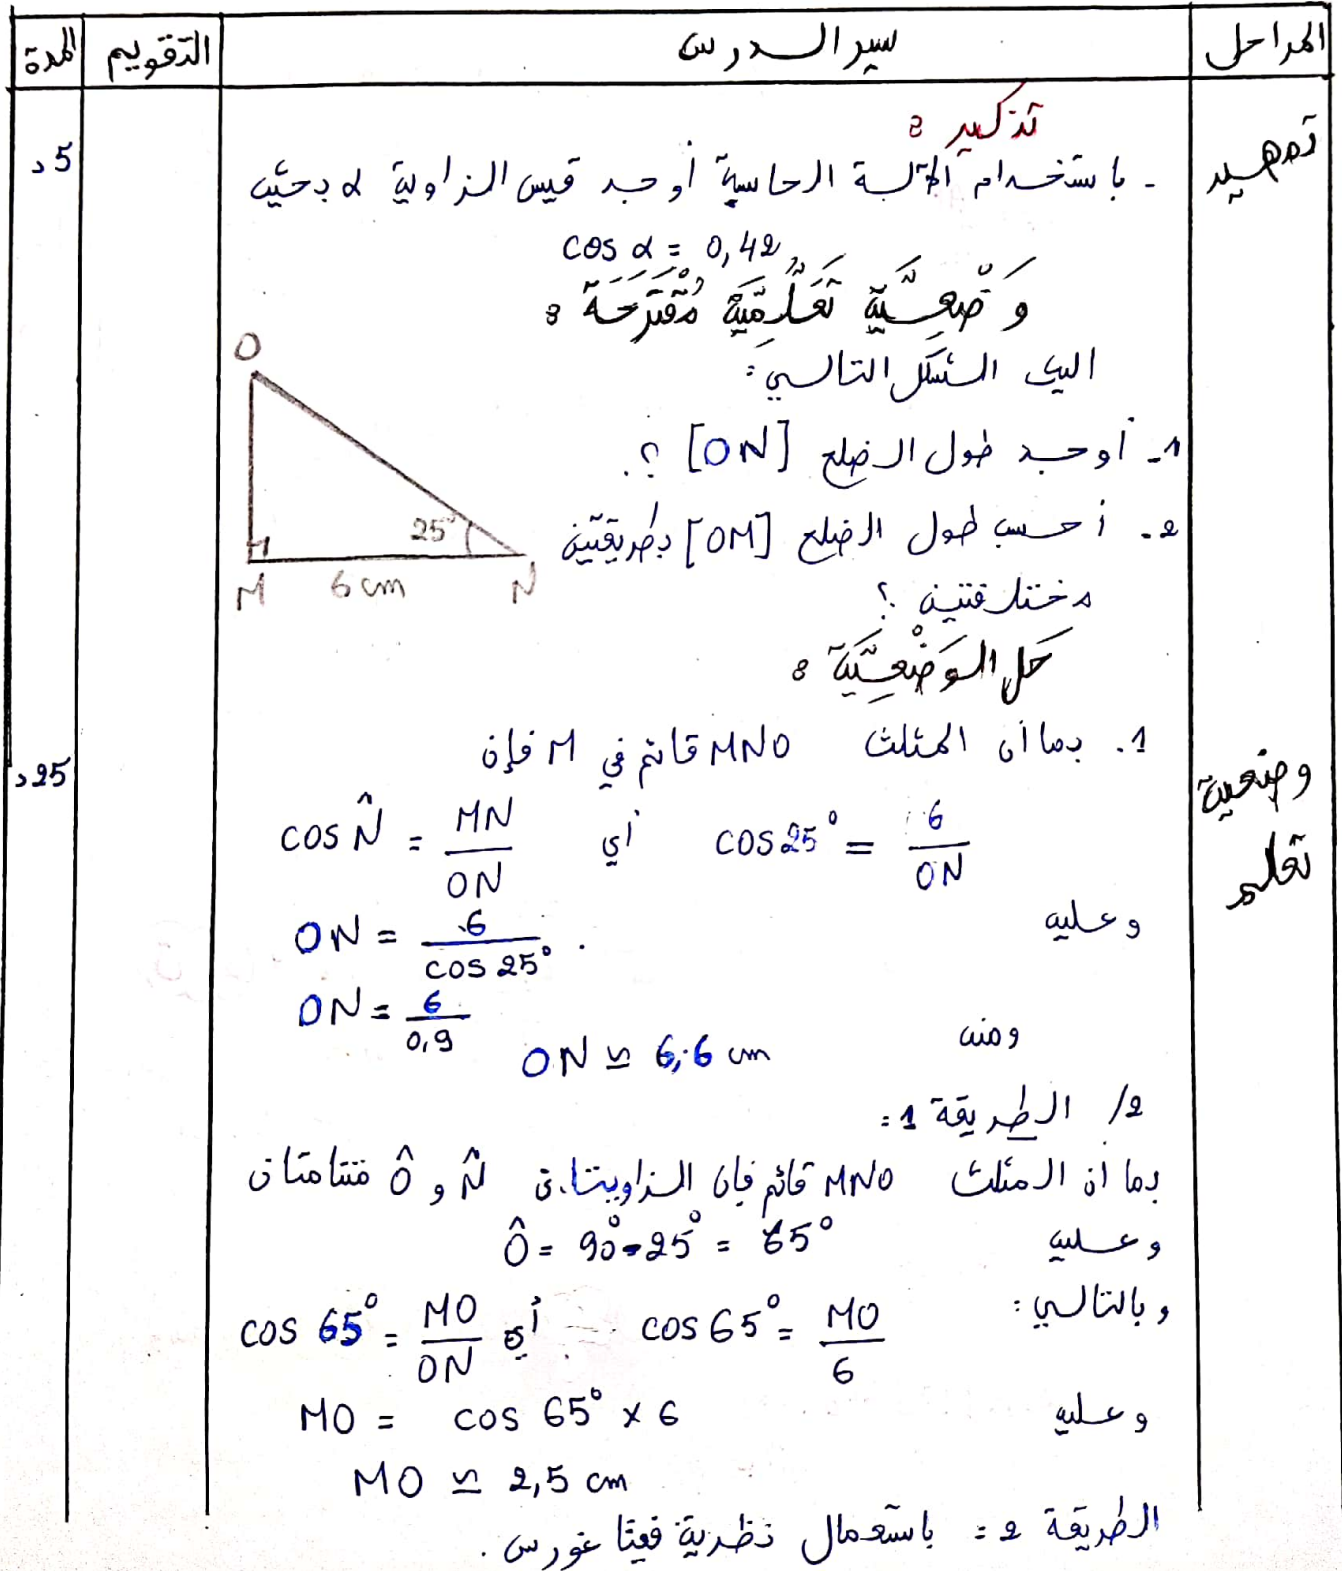 المراحل سير الدرس التقويم المدة
تمهيد
5د
تذكير :
- باستخدام الآلة الحاسبة أوجد قيس الزاوية α بحيث
cos α = 0,42
وَضْعِيَّة تَعَلُّمِيَّة مُقْتَرَحَة :
اليك الشكل التالي :
1- أوجد طول الضلع [ON] ؟.
2- أحسب طول الضلع [OM] بطريقتين
مختلفتين ؟
O
25°
M 6 cm N
حَل الوَضْعِيَّة :
وضعية
تعلم
25د
1. بما أن المثلث MNO قائم في M فإن
cos N̂ = MN/ON أي cos 25° = 6/ON
وعليه ON = 6/cos 25° .
ON = 6/0,9
ومنه ON ≃ 6,6 cm
2/ الطريقة 1 :
بما أن المثلث MNO قائم فإن الزاويتان N̂ و Ô متتامتان
وعليه Ô = 90° - 25° = 65°
وبالتالي : cos 65° = MO/ON أي cos 65° = MO/6
وعليه MO = cos 65° × 6
MO ≃ 2,5 cm
الطريقة 2 : باستعمال نظرية فيتاغورس .